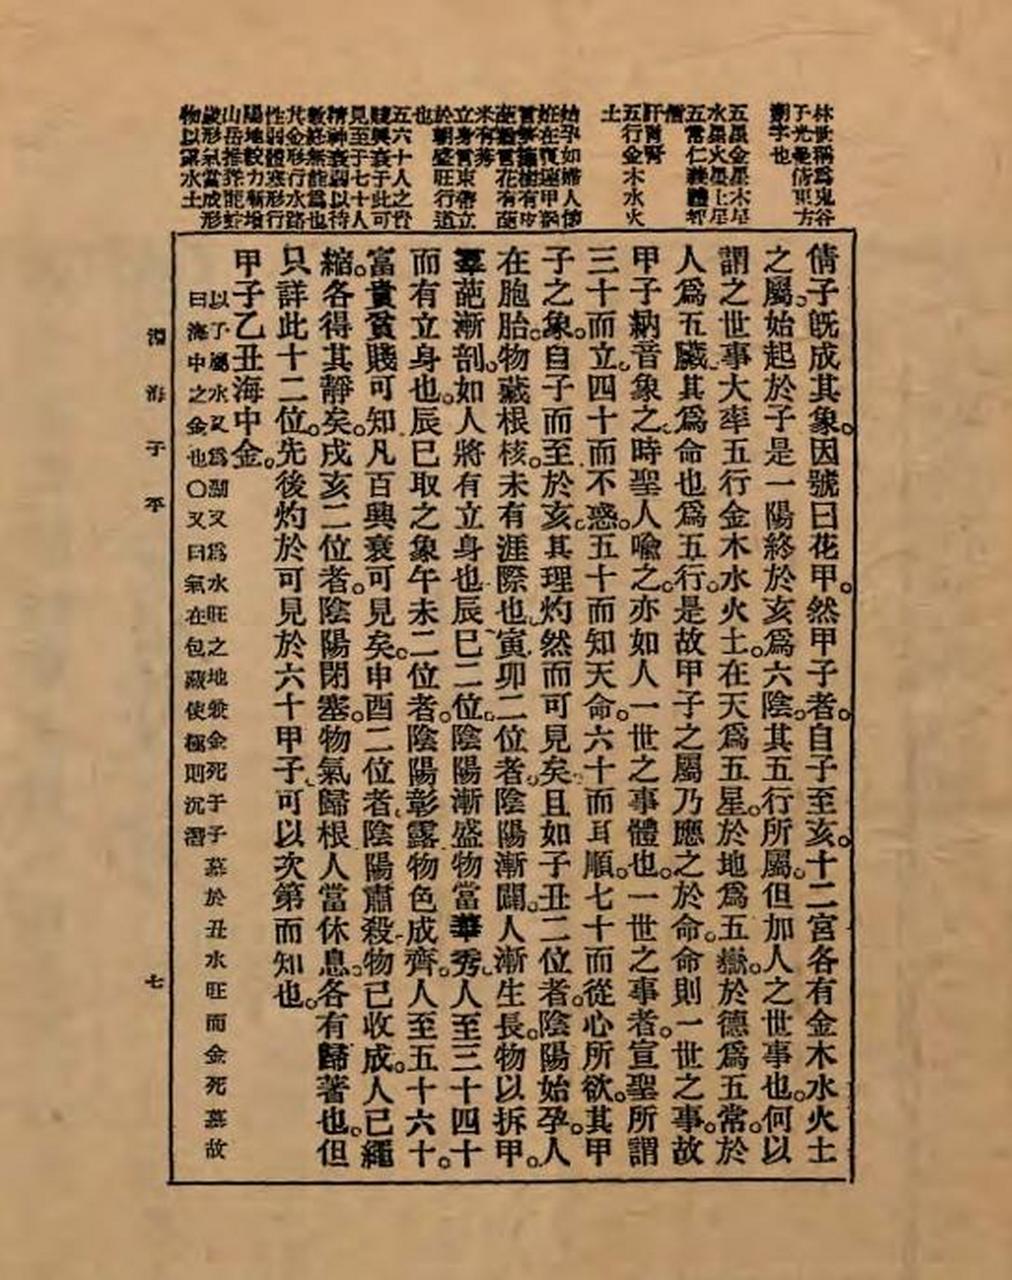 林世稱爲鬼谷
子先是倩東方
朔字也
五星金星木星
水星火星土星
五常仁義禮智
信
肝肓腎
五行金木水火
土
始孕如婦人懷
妊在
米有莠
立身言束帶立
於朝盛旺行道
也
五六十人之
賤興衰于此可
見至于七十人
精神衰弱以待
數終無能爲也
其金形行水路
性弱體寒形行
陽地設力漸增
山岳推
歲形氣當成形
物以
倩子旣成其象。因號曰花甲。然甲子者。自子至亥。十二宮各有金木水火土
之屬。始起於子是一陽終於亥爲六陰。其五行所屬。但加人之世事也。何以
謂之世事大率五行金木水火土。在天爲五星。於地爲五嶽。於德爲五常。於
人爲五臟。其爲命也爲五行。是故甲子之屬乃應之於命。命則一世之事。故
甲子納音象之。時聖人喻之。亦如人一世之事體也。一世之事者。宣聖所謂
三十而立。四十而不惑。五十而知天命。六十而耳順。七十而從心所欲。其甲
子之象。自子而至於亥。其理灼然而可見矣。且如子丑二位者。陰陽始孕。人
在胞胎。物藏根核。未有涯際也。寅卯二位者。陰陽漸闢。人漸生長。物以拆甲。
羣葩漸剖。如人將有立身也。辰巳二位。陰陽漸盛物當華秀。人至三十四十
而有立身也。辰巳取之象午未二位者。陰陽彰露物色成齊。人至五十六十。
富貴貧賤可知。凡百興衰可見矣。申酉二位者。陰陽肅殺。物已收成。人已繩
縮。各得其靜矣。戌亥二位者。陰陽閉塞。物氣歸根人當休息。各有歸著也。但
只詳此十二位。先後灼於可見於六十甲子。可以次第而知也。
甲子乙丑海中金。
以子屬水又爲湖又爲水旺之地兼金死于子墓於丑水旺而金死墓故
曰海中之金也〇又曰氣在包藏使極則沉潛
淵海子平
七